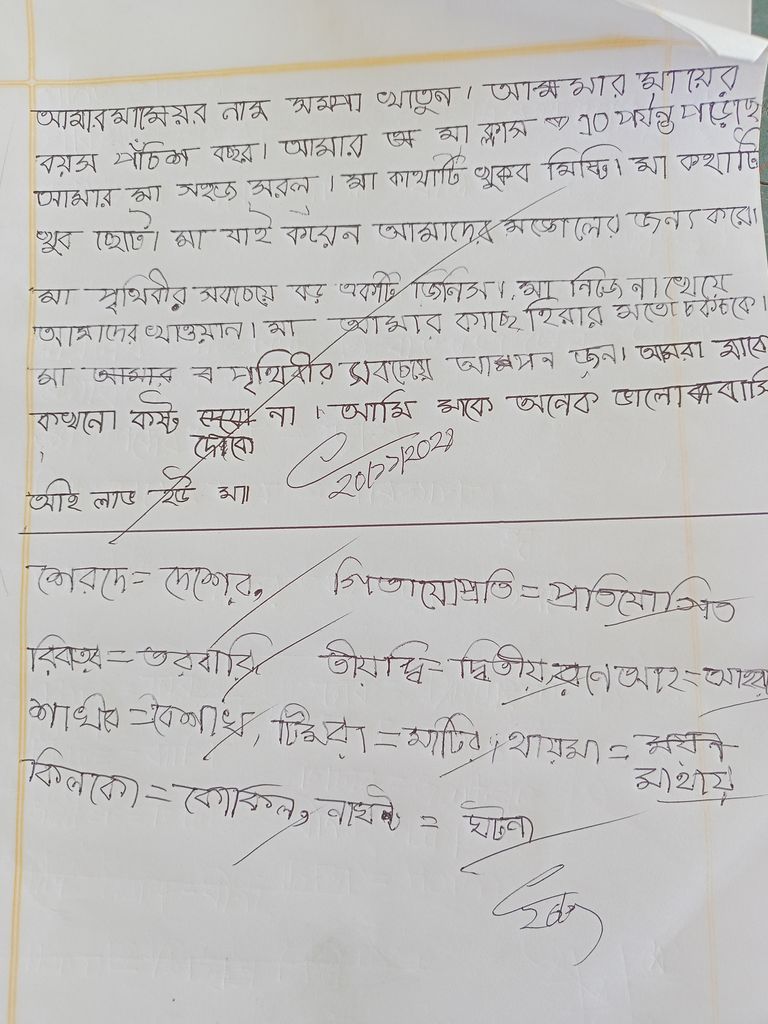 আমার মায়ের নাম সমপা খাতুন। আমার মায়ের
বয়স পঁচিশ বছর। আমার মা ক্লাস ১০ পর্যন্ত পড়েছে
আমার মা সহজ সরল। মা কাথাটি খুকব মিষ্টি। মা কথাটি
খুব ছোট। মা যাই করেন আমাদের মঙ্গোলের জন্য করে।
মা পৃথিবীর সবচেয়ে বড় একটি জিনিস। মা নিজে না খেয়ে
আমাদের খাওয়ান। মা আমার কাছে হিরার মতো চকচকে।
মা আমার পৃথিবীর সবচেয়ে আপন জন। আমরা মাকে
কখনো কষ্ট দেবো না। আমি মাকে অনেক ভালোবাসি
আই লাভ ইউ মা।
শেরদে = দেশের, গিতাযোপ্রতি = প্রতিযোগিত
রিবাতর = তরবারি তীয়দ্বি = দ্বিতীয়,
শাখবৈ = বৈশাখ, টিমরা = মাটির, থায়মা = মাথায়
কিলকো = কোকিল, নাঘট = ঘটনা